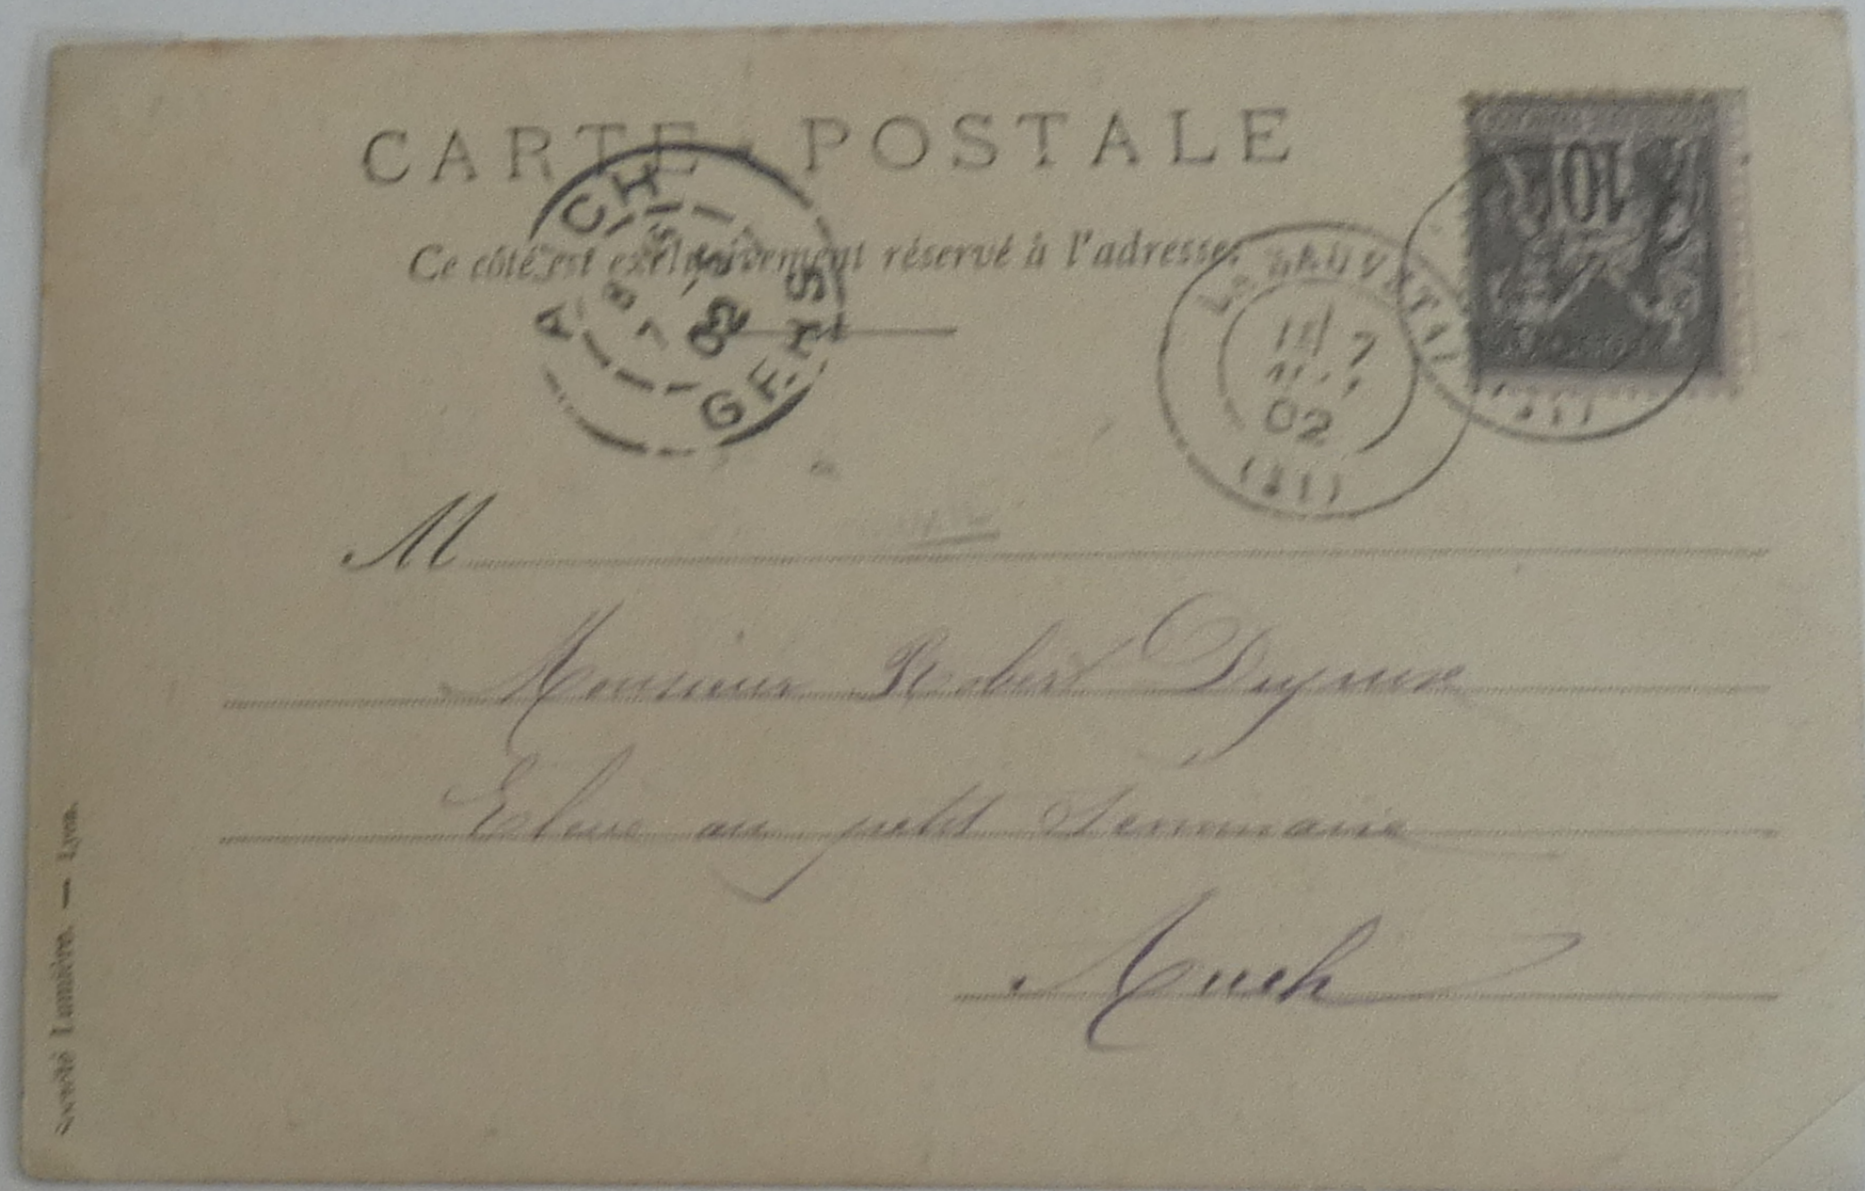 CARTE POSTALE
Ce côté est exclusivement réservé à l'adresse.
AUCH
GERS
8
7
02
LA SAUVETAT
7
02
10
M
Monsieur Robert Dupuux
Elève au petit Séminaire
Auch
Société Lumière. — Lyon.